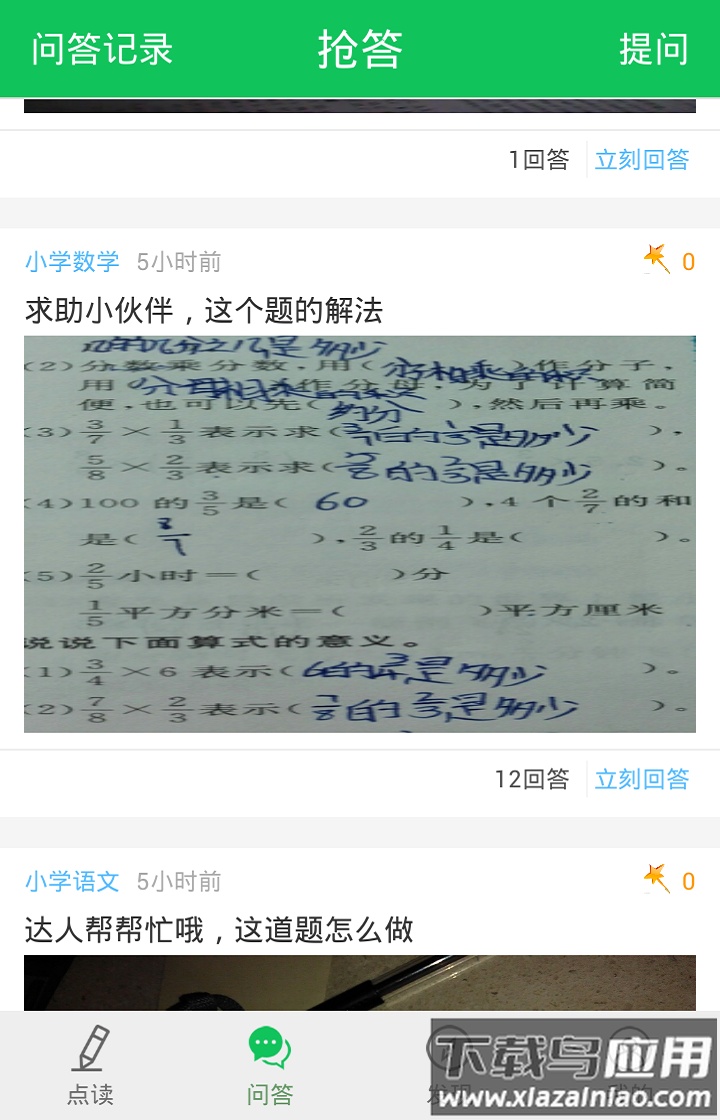 问答记录 抢答 提问
1回答 立刻回答
小学数学 5小时前 0
求助小伙伴，这个题的解法
几的几分之几是多少
(2)分数乘分数，用( 分子相乘的积 )作分子，
用( 分母相乘的积 )作分母，为了计算简
便，也可以先( 约分 )，然后再乘。
(3) 3/7 × 1/3 表示求( 3/7的 1/3是多少 )，
5/8 × 2/3 表示求( 5/8的 2/3是多少 )。
(4)100 的 3/5 是( 60 )，4 个 2/7 的和
是( 8/7 )，2/3 的 1/4 是( )。
(5) 2/5 小时＝( )分
1/5 平方分米＝( )平方厘米
说说下面算式的意义。
(1) 3/4 × 6 表示( 6的 3/4是多少 )。
(2) 7/8 × 2/3 表示( 7/8的 2/3是多少 )。
12回答 立刻回答
小学语文 5小时前 0
达人帮帮忙哦，这道题怎么做
点读 问答 发现 我的
下载鸟应用
www.xlazainiao.com